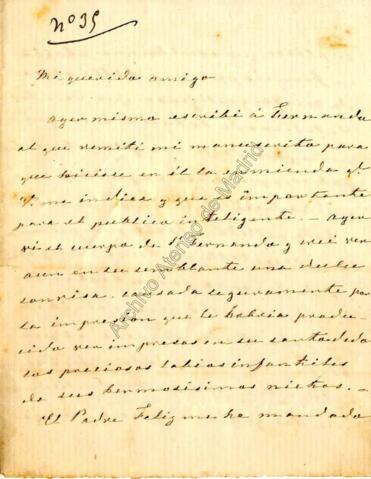 nº 35
Mi querido amigo
Ayer mismo escribi á Fernando
al que remití mi manuscrito para
que hiciese en él la enmienda q.
V. me indica y que es importante
para el publico inteligente. — ayer
vi el cuerpo de Sn Fernando y creí ver
aun en su semblante una dulce
sonrisa, causada seguramente por
la impresion que le habria produ-
cido ver impresos en su santo dedo
los preciosos labios infantiles
de sus hermosisimos nietos. —
El Padre Felix me ha mandado
Archivo Ateneo de Madrid